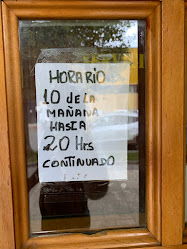 HORARIO
10 de LA
MAÑANA
HASTA
20 Hrs
CONTINUADO